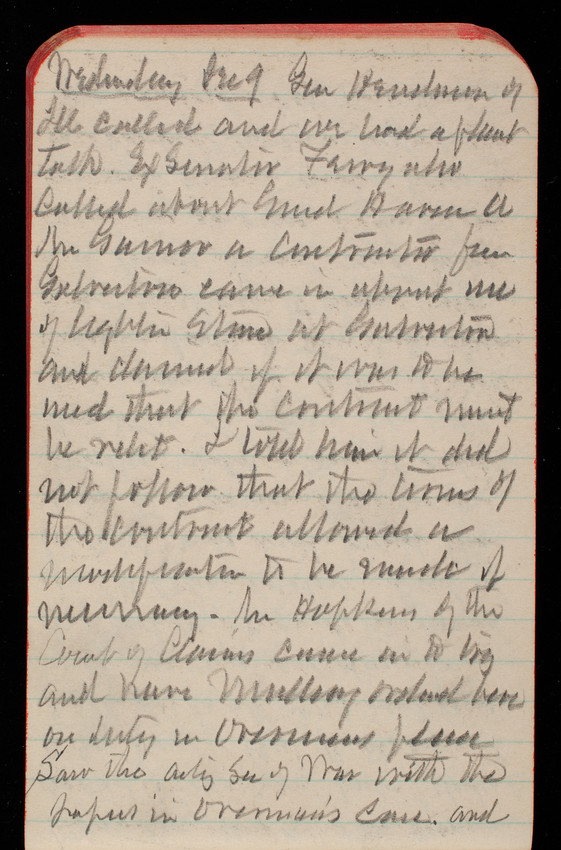 Wednesday Dec 9. Gen Henderson of
Ill called and we had a pleasant
talk. Ex Senator Ferry also
called about Grand Haven &
Mr a contractor from
Galveston came in about use
of lighter stone at Galveston
and claimed if it was to be
used that the contract must
be relet. I told him it did
not follow that the terms of
the contract allowed a
modification to be made if
necessary. Mr Hopkins of the
Court of Claims came in to try
and have ordered here
on duty in Overmans place
Saw the actg Sec of War with the
papers in Overman's case. and